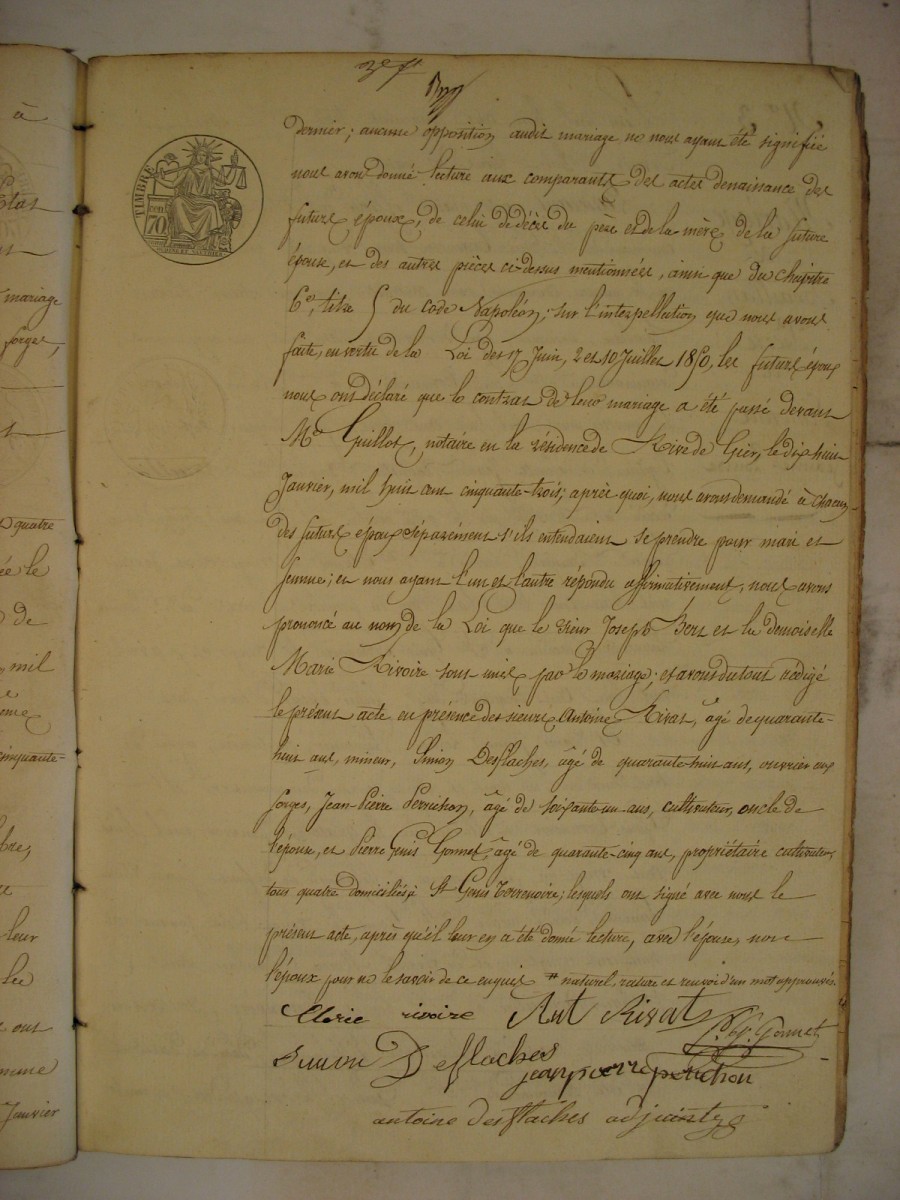 3e ft
TIMBRE
70
à
mariage
forges,
quatre
ée le
de
mil
cinquante-
bre,
leur
ont
Janvier
dernier; aucune opposition audit mariage ne nous ayant été signifiée
nous avons donné lecture aux comparants des actes de naissance des
futurs époux, de celui de décès du père et de la mère de la future
épouse, et des autres pièces ci-dessus mentionnées, ainsi que du chapitre
6e, titre 5 du code Napoléon; sur l'interpellation que nous avons
faite, en vertu de la Loi des 17 Juin, 2 et 10 Juillet 1850, les futurs époux
nous ont déclaré que le contrat de leur mariage a été passé devant
Me Guillot, notaire en la résidence de Rive de Gier, le dix huit
Janvier, mil huit cent cinquante-trois; après quoi, nous avons demandé à chacun
des futurs époux séparément s'ils entendaient se prendre pour mari et
femme; et nous ayant l'un et l'autre répondu affirmativement, nous avons
prononcé au nom de la Loi que le sieur Joseph Bert et la demoiselle
Marie Rivoire sont unis par le mariage; et avons du tout rédigé
le présent acte en présence des sieurs Antoine Rivat, âgé de quarante-
huit ans, mineur, Simon Desflaches, âgé de quarante huit ans, ouvrier aux
forges, Jean-Pierre Perrichon, âgé de soixante-un ans, cultivateur, oncle de
l'épouse, et Pierre Genis Gonnet, âgé de quarante-cinq ans, propriétaire cultivateur,
tous quatre domiciliés à St Genis Terrenoire; lesquels ont signé avec nous le
présent acte, après qu'il leur en a été donné lecture, avec l'épouse, non
l'époux pour ne le savoir de ce enquis # naturel, rature et renvoi d'un mot approuvés
Marie rivoire Ant Rivat
P. G. Gonnet
Simon Desflaches
jean pierre perichon
antoine desflaches adjoint